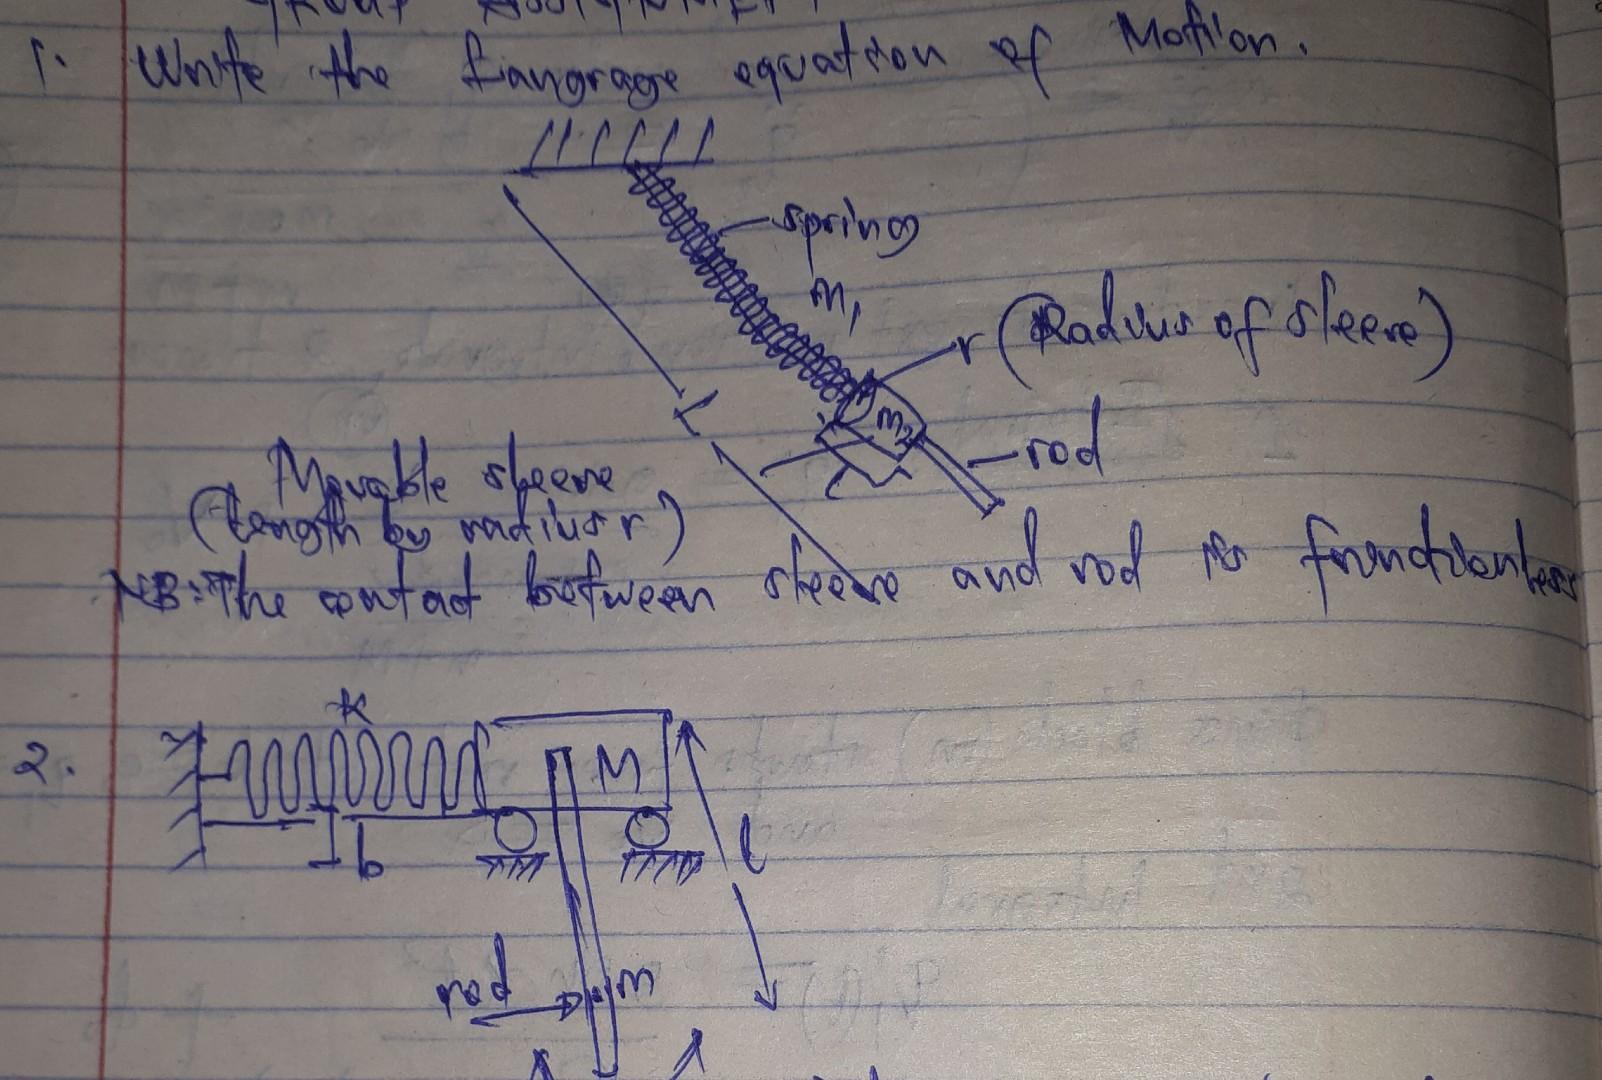 1. Write the Langrage equation of Motion.
spring
m1
r (Radius of sleeve)
m2
L
rod
Movable sleeve
(Length by radius r)
NB: The contact between sleeve and rod is
2.
k
M
b
l
rod
m